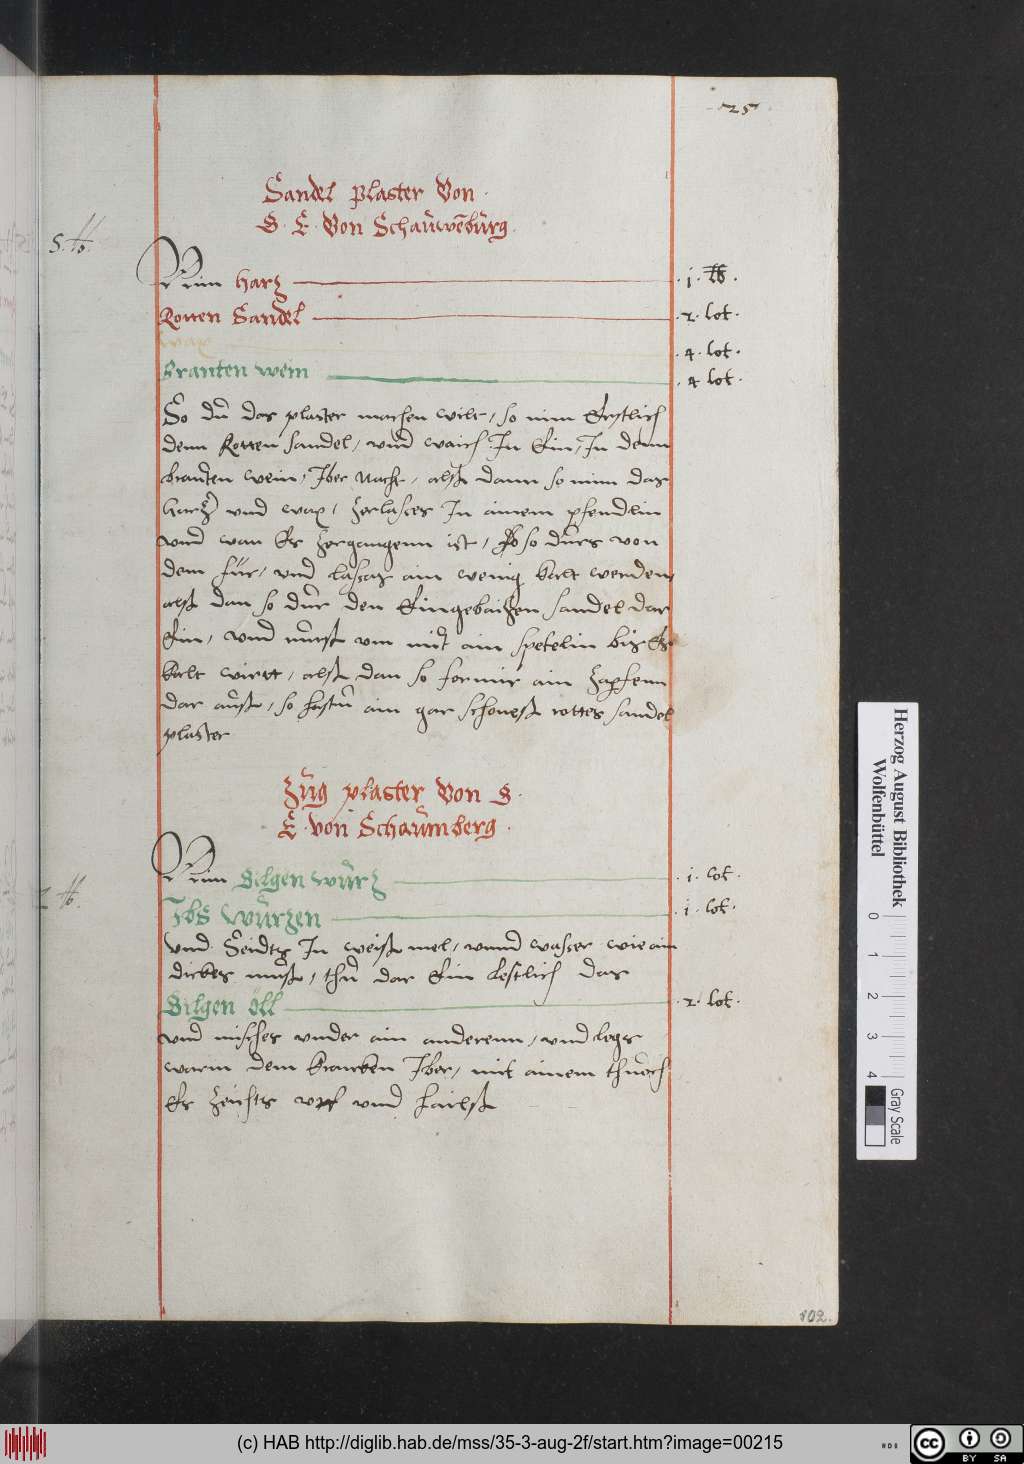 25
Sandel plaster Von
S. E. Von Schaůwēbůrg.
Nim Hartz .1. ℔.
Rotten Sandel .2. lot.
Wax .4. lot.
Branten wein .4. lot.
So dů das plaster machen wilt, so nim Erstlich
denn Rotten sandel, vnd waich In Ein, In denn
brandten wein, Iber Nacht, alß dann so nim das
hartz vnd wax, zerlasses In ainem pfendlin
vnd wan Es zergangenn ist, so důrs von
dem für, vnd lassaz ain wenig kalt werden,
alß dan so důr den Eingebaitzen sandel dar
Ein, vnd růrß vm mit ain spetelin biz Es
kalt wirtt, alß dan so formir ain zapfenn
dar auß, so hastů ain gar schoneß rottes sandel
plaster
Zůg plaster Von S.
E. von Schaůmberg.
Nim Gilgen würtz .1. lot.
Ibs würtzen .1. lot.
Vnd Seidts In weiß mel, vnnd wasser wie ain
dickes můß, thů dar Ein lestlich das
Gilgen öll .2. lot.
vnd misches vnder ain anderenn, vnd legs
warm dem krancken Iber, mit ainem thůoch
Es zeichts vff vnd hailß
102.
5. ℔.
Herzog August Bibliothek
Wolfenbüttel
0 1 2 3 4
Gray Scale
(c) HAB http://diglib.hab.de/mss/35-3-aug-2f/start.htm?image=00215
cc BY SA